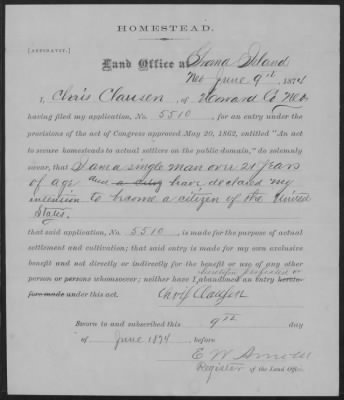 HOMESTEAD.
[AFFIDAVIT.]
Land Office at Grand Island
Neb June 9th, 1874
I, Chris Clausen, of Howard Co Neb
having filed my application, No. 5510, for an entry under the
provisions of the act of Congress approved May 20, 1862, entitled "An act
to secure homesteads to actual settlers on the public domain," do solemnly
swear, that I am a single man over 21 years
of age and have declared my
intention to become a citizen of the United
States.
that said application, No. 5510, is made for the purpose of actual
settlement and cultivation; that said entry is made for my own exclusive
benefit and not directly or indirectly for the benefit or use of any other
heretofore perfected or
person or persons whomsoever; neither have I abandoned an entry hereto-
fore made under this act.
Chris Clausen
Sworn to and subscribed this 9th day
of June 1874, before
E W Arnold
Register of the Land Office.